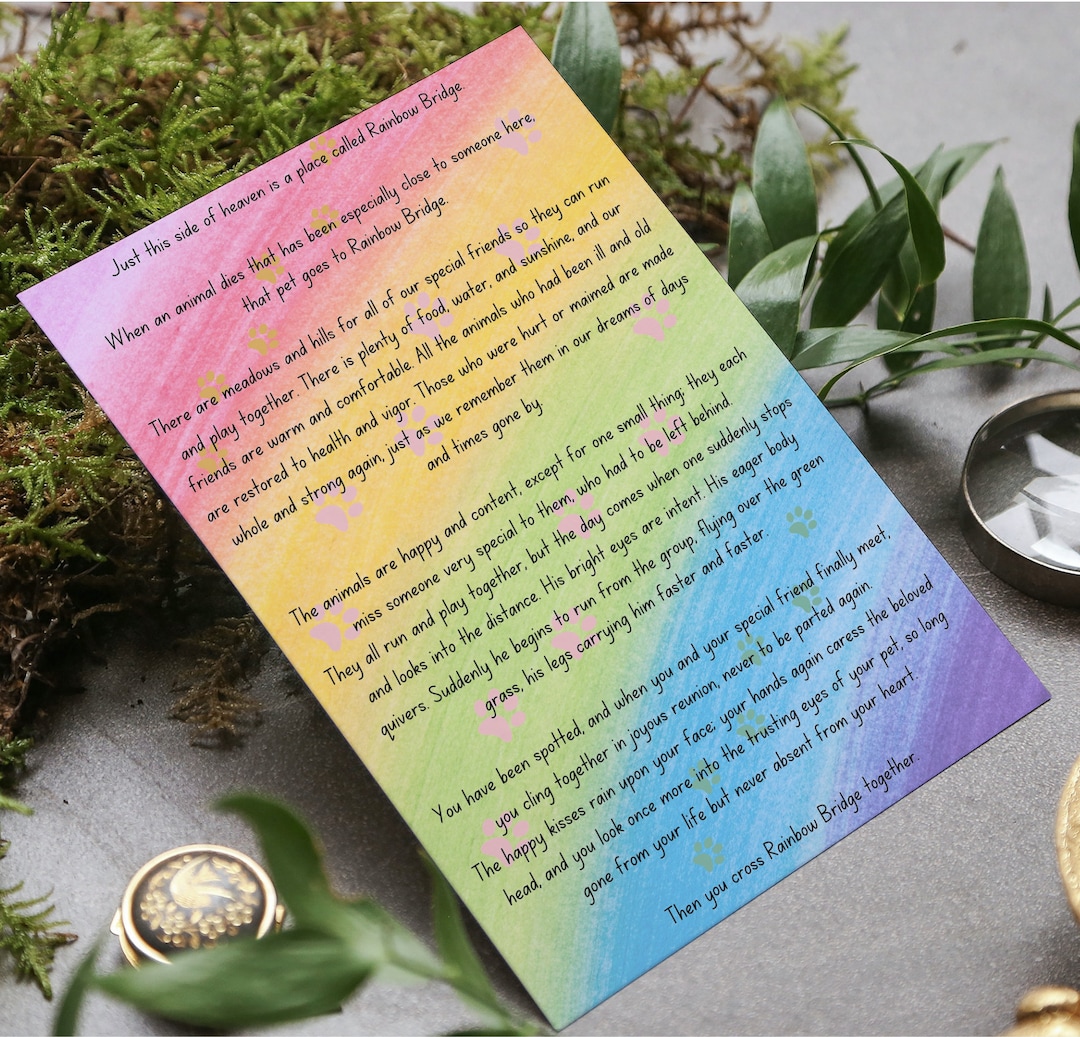 Just this side of heaven is a place called Rainbow Bridge.
When an animal dies that has been especially close to someone here,
that pet goes to Rainbow Bridge.
There are meadows and hills for all of our special friends so they can run
and play together. There is plenty of food, water, and sunshine, and our
friends are warm and comfortable. All the animals who had been ill and old
are restored to health and vigor. Those who were hurt or maimed are made
whole and strong again, just as we remember them in our dreams of days
and times gone by.
The animals are happy and content, except for one small thing; they each
miss someone very special to them, who had to be left behind.
They all run and play together, but the day comes when one suddenly stops
and looks into the distance. His bright eyes are intent. His eager body
quivers. Suddenly he begins to run from the group, flying over the green
grass, his legs carrying him faster and faster.
You have been spotted, and when you and your special friend finally meet,
you cling together in joyous reunion, never to be parted again.
The happy kisses rain upon your face; your hands again caress the beloved
head, and you look once more into the trusting eyes of your pet, so long
gone from your life but never absent from your heart.
Then you cross Rainbow Bridge together.